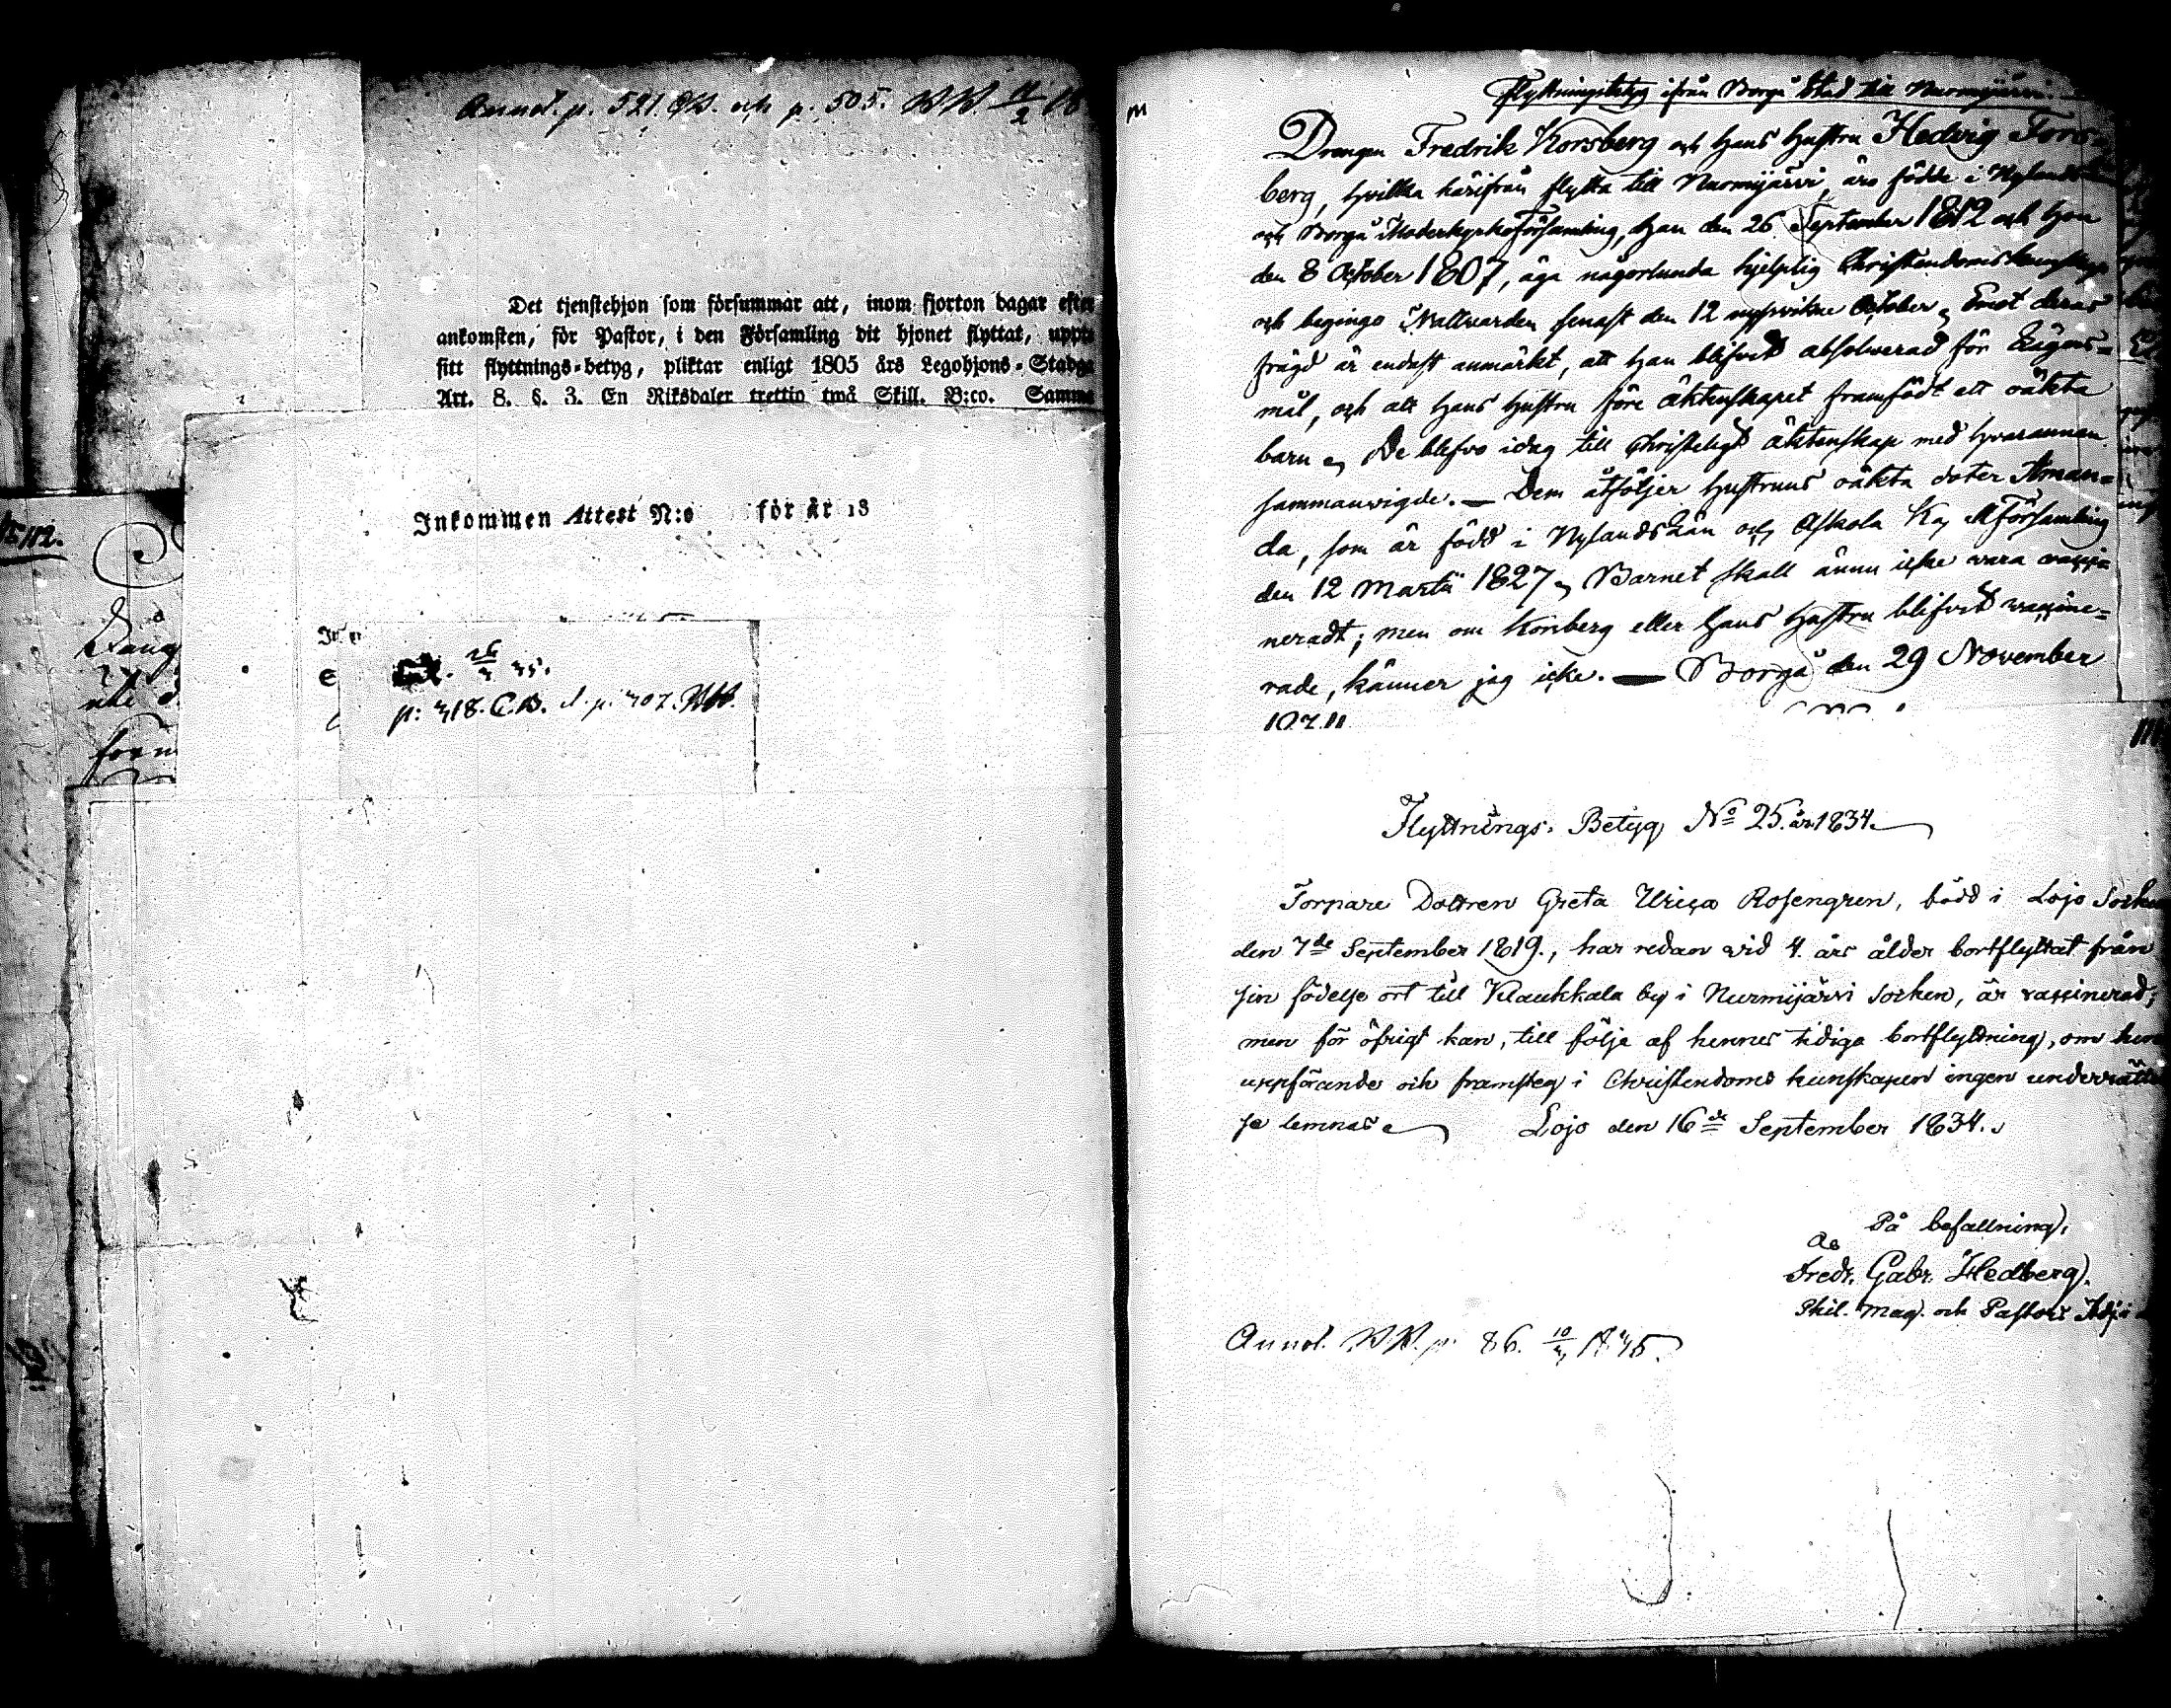 Annot. p. 521. CB. och p. 505. WW. 11/2 18
Det tjenstehjon som försummar att, inom fjorton dagar efter
ankomsten, för Pastor, i den Församling dit hjonet flyttat, uppte
sitt flyttnings-betyg, pliktar enligt 1805 års Legohjons-Stadga
Art. 8. §. 3. En Riksdaler trettio twå Skill. B:co. Samma
Inkommen Attest N:o för år 18
26/3 35.
p: 318. C.B. d. p. 307. WW.
112.
Flyttningsbetyg ifrån Borgå Stad till Nurmijärvi.
Drengen Fredrik Korsberg och hans hustru Hedvig Fors-
berg, hvilka härifrån flytta till Nurmijärvi, äro födde i Nylands
och Borgå Moderkyrkoförsamling, han den 26 September 1812 och hon
den 8 October 1807, äga någorlunda hjelplig Christendomskunskap
och begingo Nattvarden senast den 12 nysvikne October. Emot deras
frägd är endast anmärkt, att han blifvit absolverad för Lägers-
mål, och att hans hustru före äktenskapet framfödt ett oäkta
barn. De blefvo idag till Christeligt äktenskap med hvarannan
sammanvigde. — Dem åtföljer hustruns oäkta doter Aman-
da, som är född i Nylands Län och Askola Ka församling
den 12 Martii 1827. Barnet skall ännu icke vara vacci-
neradt; men om Korsberg eller hans hustru blifvit vaccine-
rade, känner jag icke. — Borgå den 29 November
Flyttnings-Betyg No 25. år 1834.
Torpare Dottren Greta Ulrica Rosengren, född i Lojo Socken
den 7de September 1819., har redan vid 4. års ålder bortflyttat från
sin födelse ort till Klaukkala by i Nurmijärvi Socken, är vaccinerad;
men för öfrigt kan, till följe af hennes tidiga bortflyttning, om hennes
uppförande och framsteg i Christendoms kunskapen ingen underrättel
se lemnas. Lojo den 16de September 1834.
På befallning,
Fredr. Gabr. Hedberg.
Phil. Mag. och Pastors Adj. i
Annot. WW. p. 86. 10/3 1835.